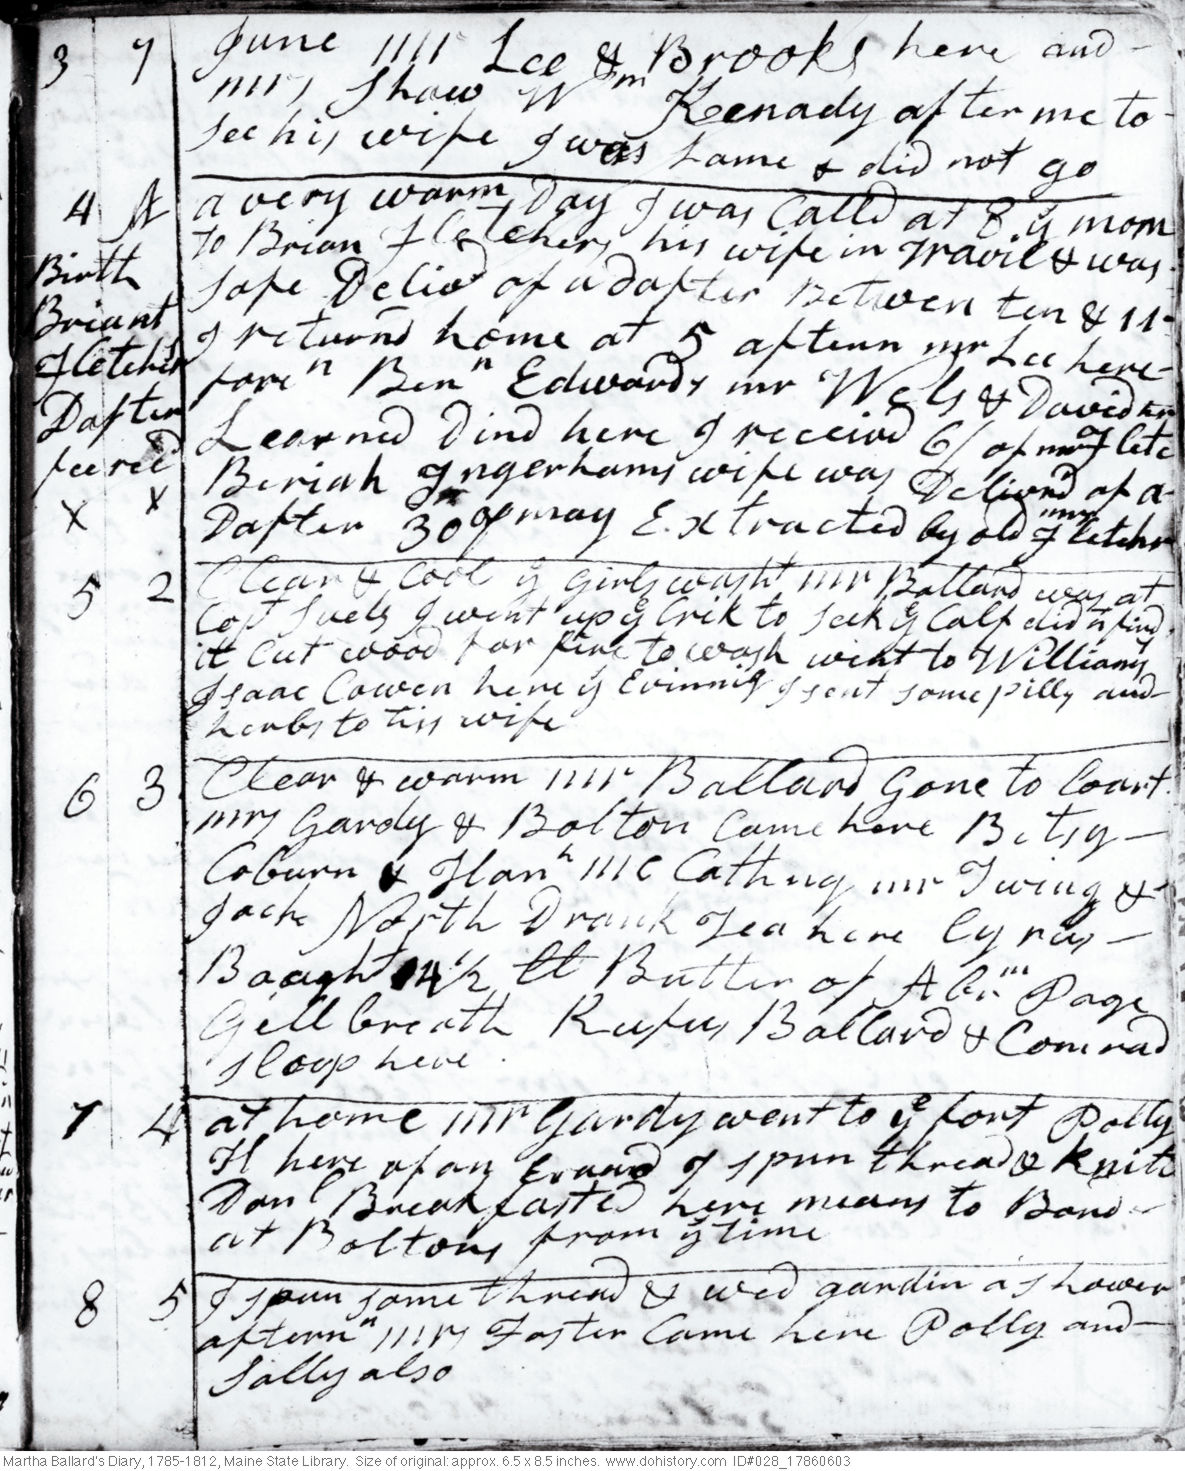 3 7 June mr Lee & Brooks here and
mrs Shaw Wm Kenady after me to
see his wife I was Lame & did not go
4 A a very warm Day I was Calld at 8 ye morn
to Brian Fletchers his wife in Travil & was
Birth safe Delivd of a Dafter Betwen ten & 11
Briant I returnd home at 5 aftern mr Lee here
Fletcher foren Benn Edwards mr Wels & David
Dafter Learned Dind here I receivd 6/ of mr Fletc
fee recd Beriah Ingerhams wife was Delivrd of a
X X Dafter 30 of may Extracted by old mrs Fletchr
5 2 Clear & Cool ye girls washt mr Ballard was at
Capt Suels I went up ye Crik to seek ye Calf did nt find
it Cut wood for fire to wash went to Williams
Isaac Cowen here ye Evinnig I sent some pills and
herbs to his wife
6 3 Clear & warm mr Ballard Gone to Coart
mrs Gardy & Bolton Came here Betsy
Coburn & Hanh mc Cathny mr Twing &
Jack North Drank Tea here Cyrus
Baught 14 1/2 lb Butter of Abrm Page
Gillbreath Rufus Ballard & Comrad
sleap here
7 4 at home mr Gardy went to ye fort Polly
H here of an Errand I spun thread & knit
Danl Breakfasted here means to Bord
at Boltons from ys time
8 5 I spun some thread & wed gardin a shower
afternn mrs Foster Came here Polly and
Sally also
Martha Ballard's Diary, 1785-1812, Maine State Library. Size of original: approx. 6.5 x 8.5 inches. www.dohistory.com ID#028_17860603